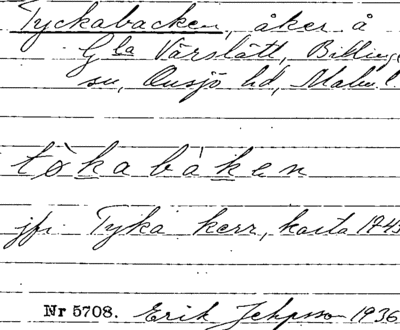 Tyckabacken, åker å
Gla Vårslätt, Billinge
sn, Onsjö hd, Malm. l.
tòkabàken
jfr. Tyka kerr, karta 1845
Nr 5708. Erik Jeppsson 1936